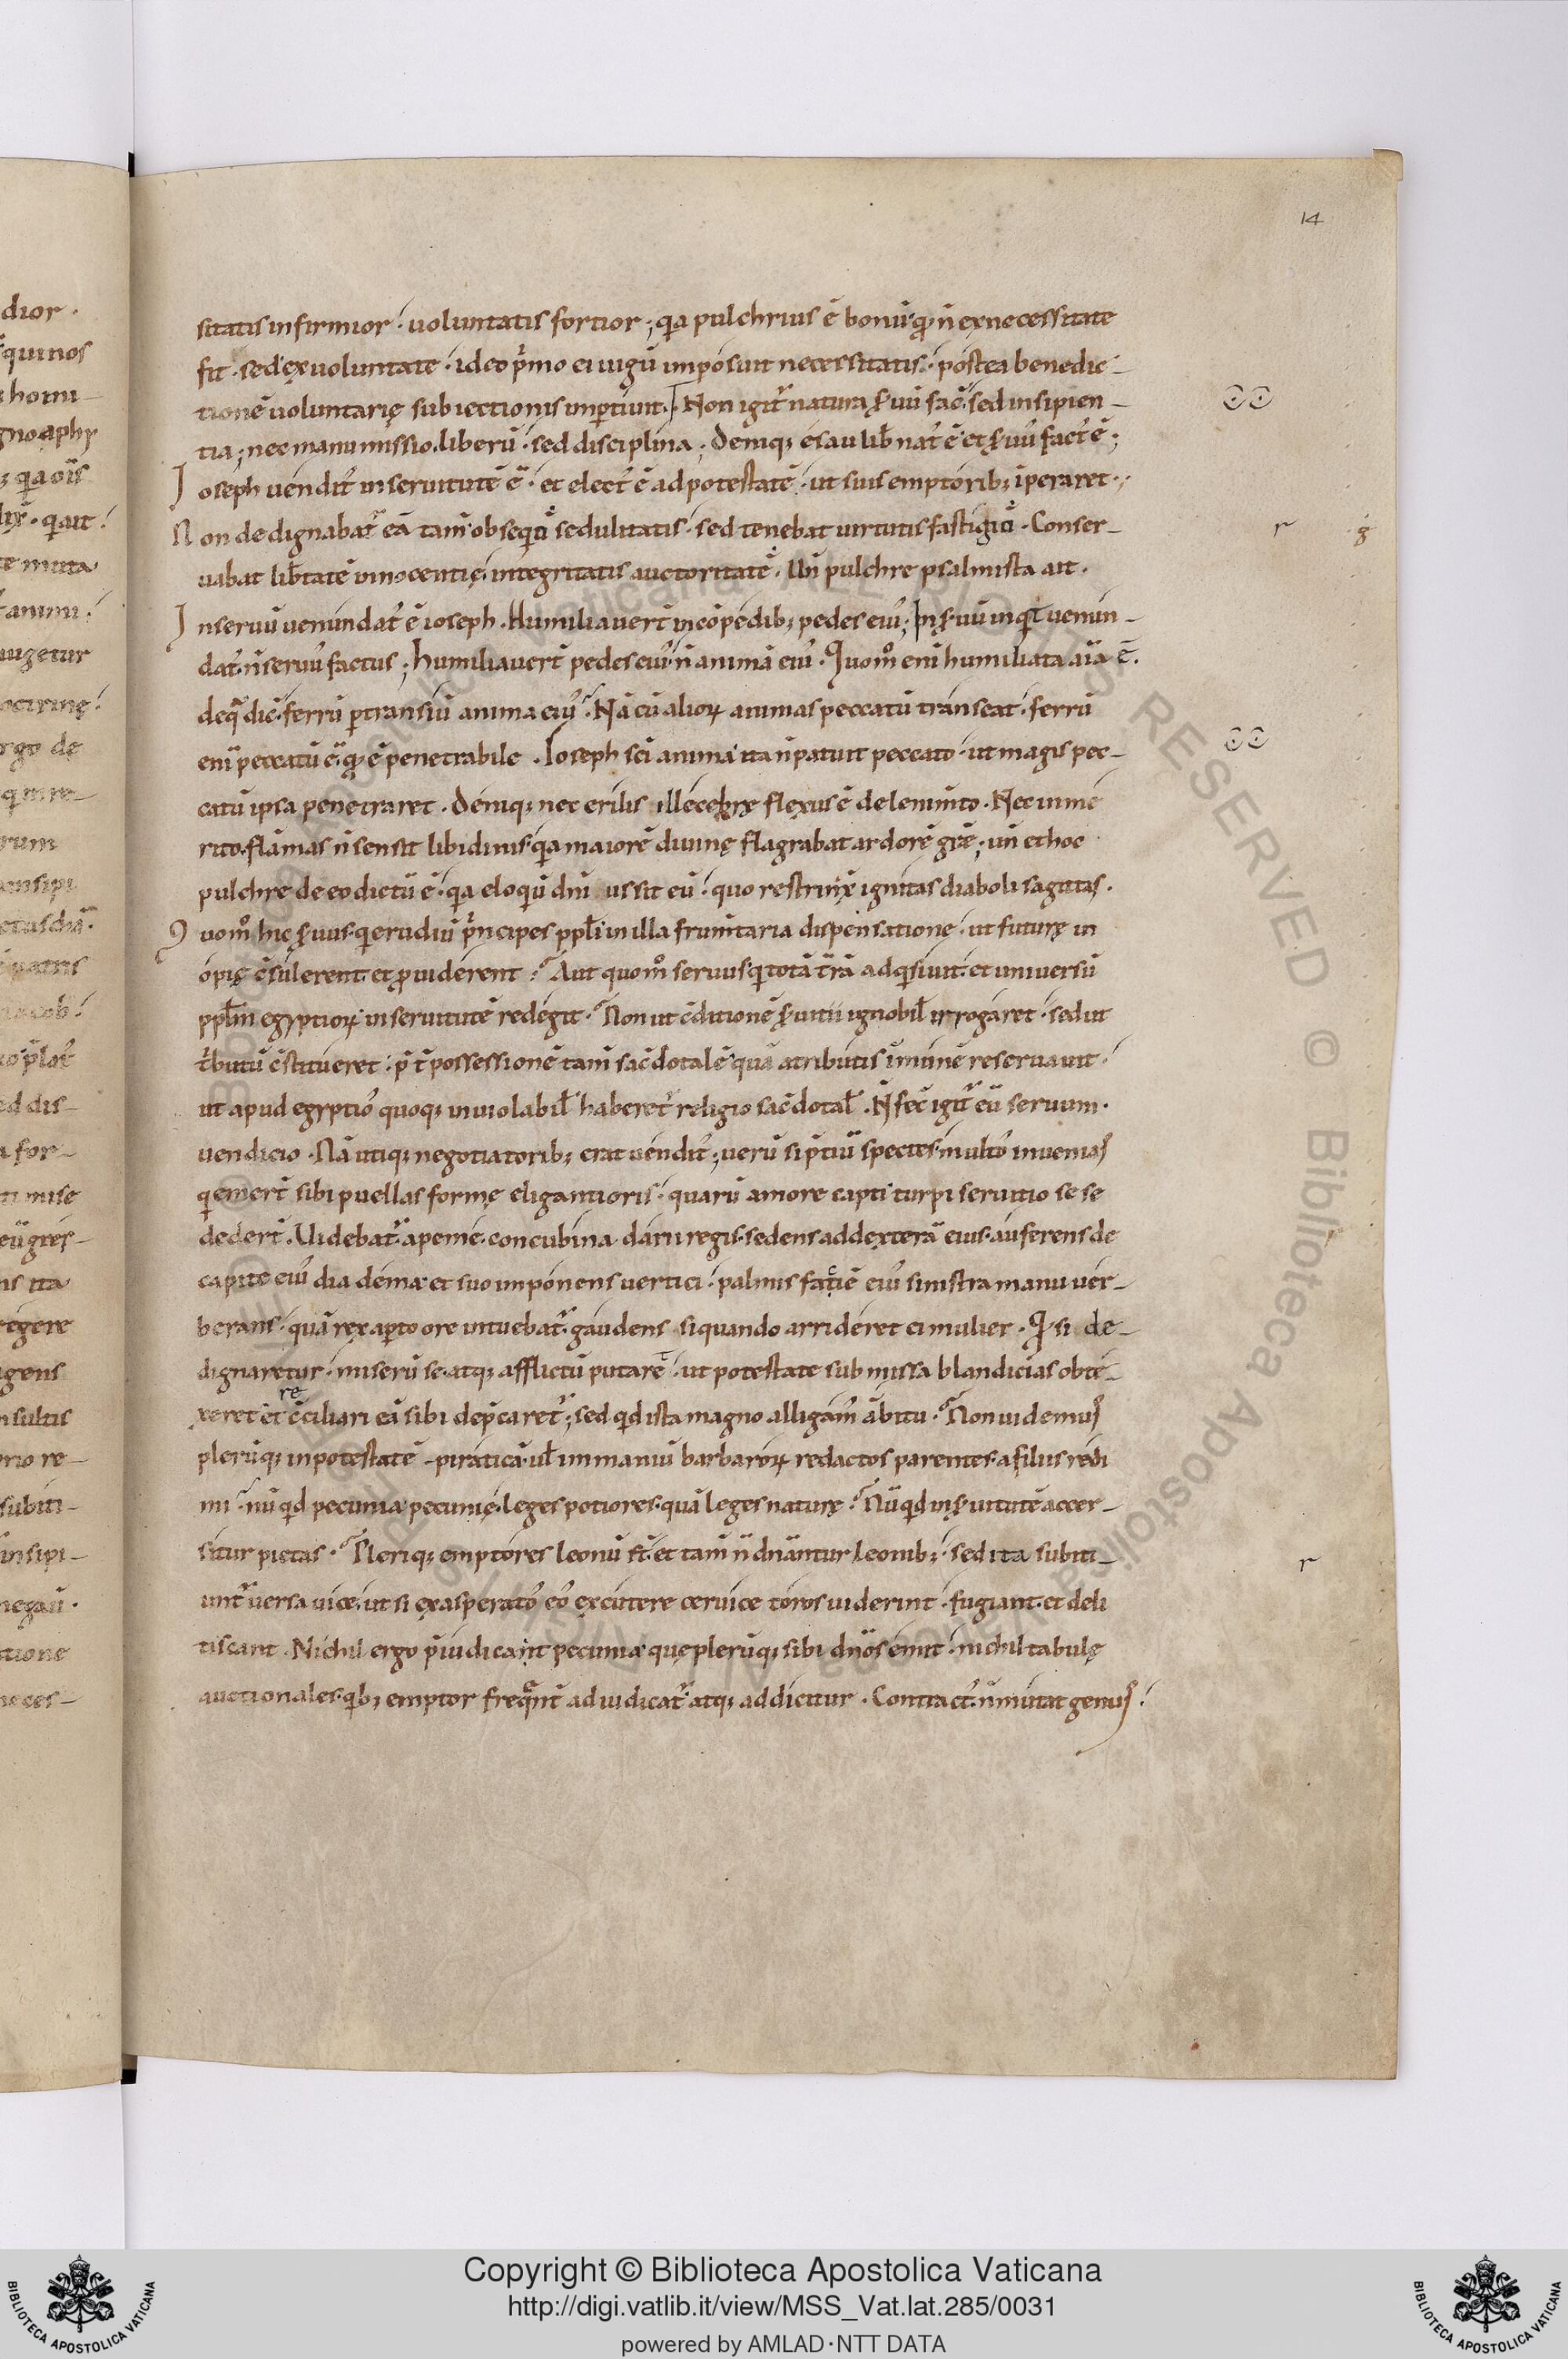 14
sitatis infirmior· uoluntatis fortior; qa pulchrius ē bonū qď n̄ ex necessitate
fit· sed ex uoluntate· ideo p̃mo ei iugū imposuit necessitatis· postea benedic-
tionē uoluntarię subiectionis inꝑtiuit· Non igit̃ natura ẜuū fac̄ sed insipien-
tia; nec manumissio liberū· sed disciplina; Deniq; esau lib̄ nat᾽ ē et ẜuu᾽ fact᾽ ē;
Ioseph uendit᾽ in seruitutē ē· et elect᾽ ē ad potestatē· ut suis emptorib; īperaret·
Non dedignabat̃ eā tam̄ obsequii sedulitatis· sed tenebat uirtutis fastigiū· Conser-
uabat lib̄tatē innocentię· integritatis auctoritatē· Vn̄ pulchre psalmista ait·
In seruū uenundat᾽ ē ioseph· Humiliauer̄t in cōpedib; pedes eiu᾽; In ẜuū inqt uenun-
dat᾽ n̄ seruu᾽ factus; humiliauer̄t pedes eiu᾽ n̄ animā eiu᾽· Quom̊ eni humiliata aīa ē·
de qͣ dic̄· ferrū ꝑtransiu᾽ anima eiu᾽· Nā cū alioꝝ animas peccatū transeat· ferrū
eni peccatū ē· qď ē penetrabile· Ioseph sc̄i anima ita n̄ patuit peccato· ut magis pec-
catū ipsa penetraret· Deniq; nec erilis illecebrę flexus ē delenim̄to· Nec inme
rito flāmas n̄ sensit libidinis qa maiorē diuinę flagrabat ardorē gr̄ę; un̄ et hoc
pulchre de eo dictū ē· qa eloqū dn̄i ussit eū· quo restrinx̄ ignitas diaboli sagittas·
Quom̊ hic ẜuus qi erudiu᾽ p̃ncipes ppl̄i in illa frum̄taria dispensatione· ut futurę in
opię c̄sulerent· et ꝓuiderent· Aut quom̊ seruus q totā t̄rā adqsiuit· et uniuersū
ppl̄m egyptioꝝ in seruitutē redegit· Non ut c̄ditionē ẜuitii ignobil̄ irrogaret· sed ut
t̃butū c̄stitueret· p̄t̄ possessionē tam̄ sac̄dotalē quā a tributis īmunē reseruauit·
ut apud egyptio᾽ quoq; inuiolabil̄ haberet᾽ religio sac̄dotal̄· N̄ fec̄ igit̃ eū seruum·
uendicio· Nā utiq; negotiatorib; erat uendit᾽; uerū si p̄tiū spectes multo᾽ inuenias
q emer̄t sibi puellas formę eligantioris· quarū amore capti turpi seruitio se se
deder̄t· Videbat̃ apeme· concubina darii regis· sedens ad dexterā eius· auferens de
capite eiu᾽ diadema et suo imponens uertici· palmis faciē eiu᾽ sinistra manu uer-
berans· quā rex aꝑto ore intuebat̃ gaudens si quando arrideret ei mulier· Qď si de-
dignaretur· miserū se· atq; afflictū putaret· ut potestate submissa blandicias obte-
xeret et rec̄ciliari eā sibi dep̄caret᾽; sed qd ista magno alligam᾽ ābitu· Non uidemus
plerūq; in potestatē piraticā ul̄ immaniū barbaroꝝ redactos parentes a filiis redi
mi· nūqd pecunia pecunię leges potiores quā leges naturę· Nūqd in ẜuitutē accer-
situr pietas· Pleriq; emptores leonū st̄· et tam̄ n̄ dn̄antur leonib;· sed ita subiti-
unt̃ uersa uice· ut si exasperato᾽ eo᾽ excutere ceruice toros uiderint· fugiant et deli
tiscant· Nichil ergo p̄iudicauit pecunia que plerūq; sibi dn̄os emit· nichil tabulę
auctionales· qb; emptor freqn̄t adiudicat̃ atq; addicitur· Contract᾽ n̄ mutat genus·
r
g
r
Copyright © Biblioteca Apostolica Vaticana
http://digi.vatlib.it/view/MSS_Vat.lat.285/0031
powered by AMLAD·NTT DATA
BIBLIOTECA APOSTOLICA VATICANA
BIBLIOTECA APOSTOLICA VATICANA